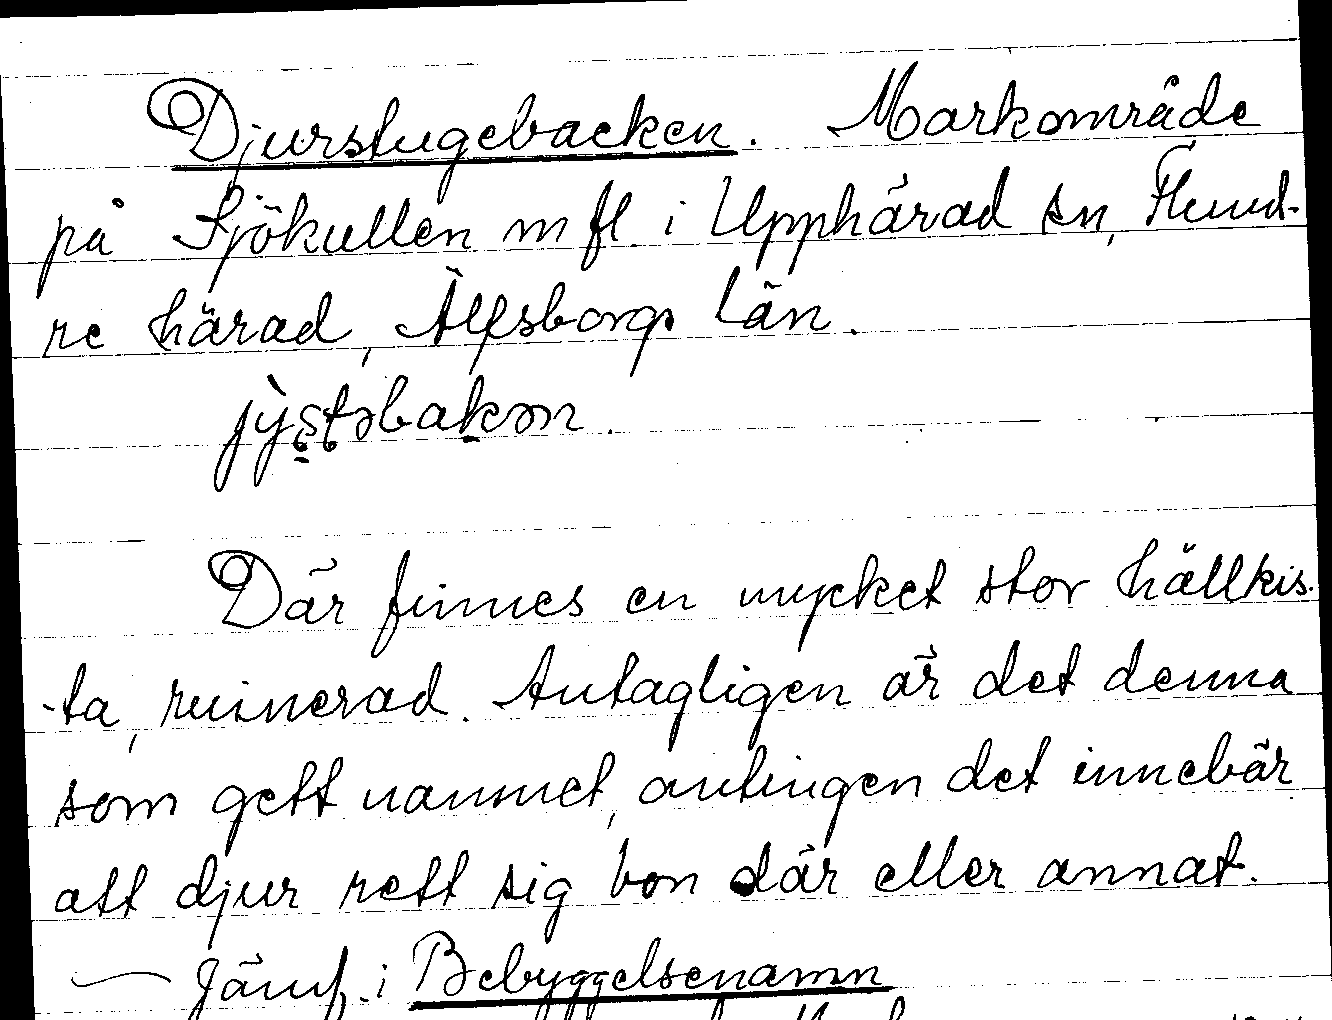 Djurstugebacken. Markområde
på Sjökullen m fl i Upphärad sn, Flund-
re härad, Älfsborgs län.
jy̆stəbakən.
Där finnes en mycket stor hällkis-
-ta, ruinerad. Antagligen är det denna
som gett namnet, antingen det innebär
att djur rett sig bon där eller annat.
— Jämf. i Bebyggelsenamn